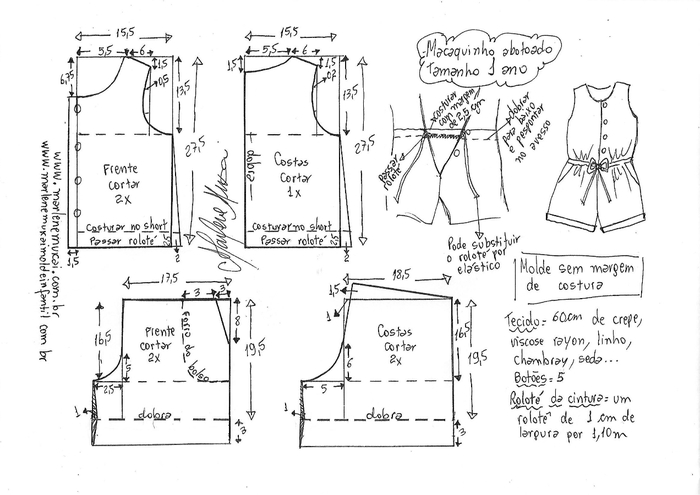 Macaquinho abotoado
Tamanho 1 ano
15,5
5,5
6
1,5
6,75
0,5
13,5
27,5
Frente
cortar
2x
Costurar no short
Passar roloté
2,5
1,5
2
15,5
5,5
6
1,5
1,5
0,2
13,5
27,5
dobra
Costas
cortar
1x
Costurar no short
Passar roloté
2,5
2
Marlene Mukai
costurar
com margem
de 2,5 cm
dobrar
para baixo
e pespontar
no avesso
passar
roloté
Pode substituir
o roloté por
elástico
www.marlenemukai.com.br
www.marlenemukaimoldeinfantil.com.br
17,5
3
3
8
16,5
19,5
Frente
cortar
2x
Forro do bolso
5
2,5
1
dobra
3
18,5
1,5
1
16,5
19,5
Costas
cortar
2x
6
5
1
dobra
3
Molde sem margem
de costura
Tecido = 60cm de crepe,
viscose rayon, linho,
chambray, seda...
Botões = 5
Roloté da cintura = um
roloté de 1 cm de
largura por 1,10m